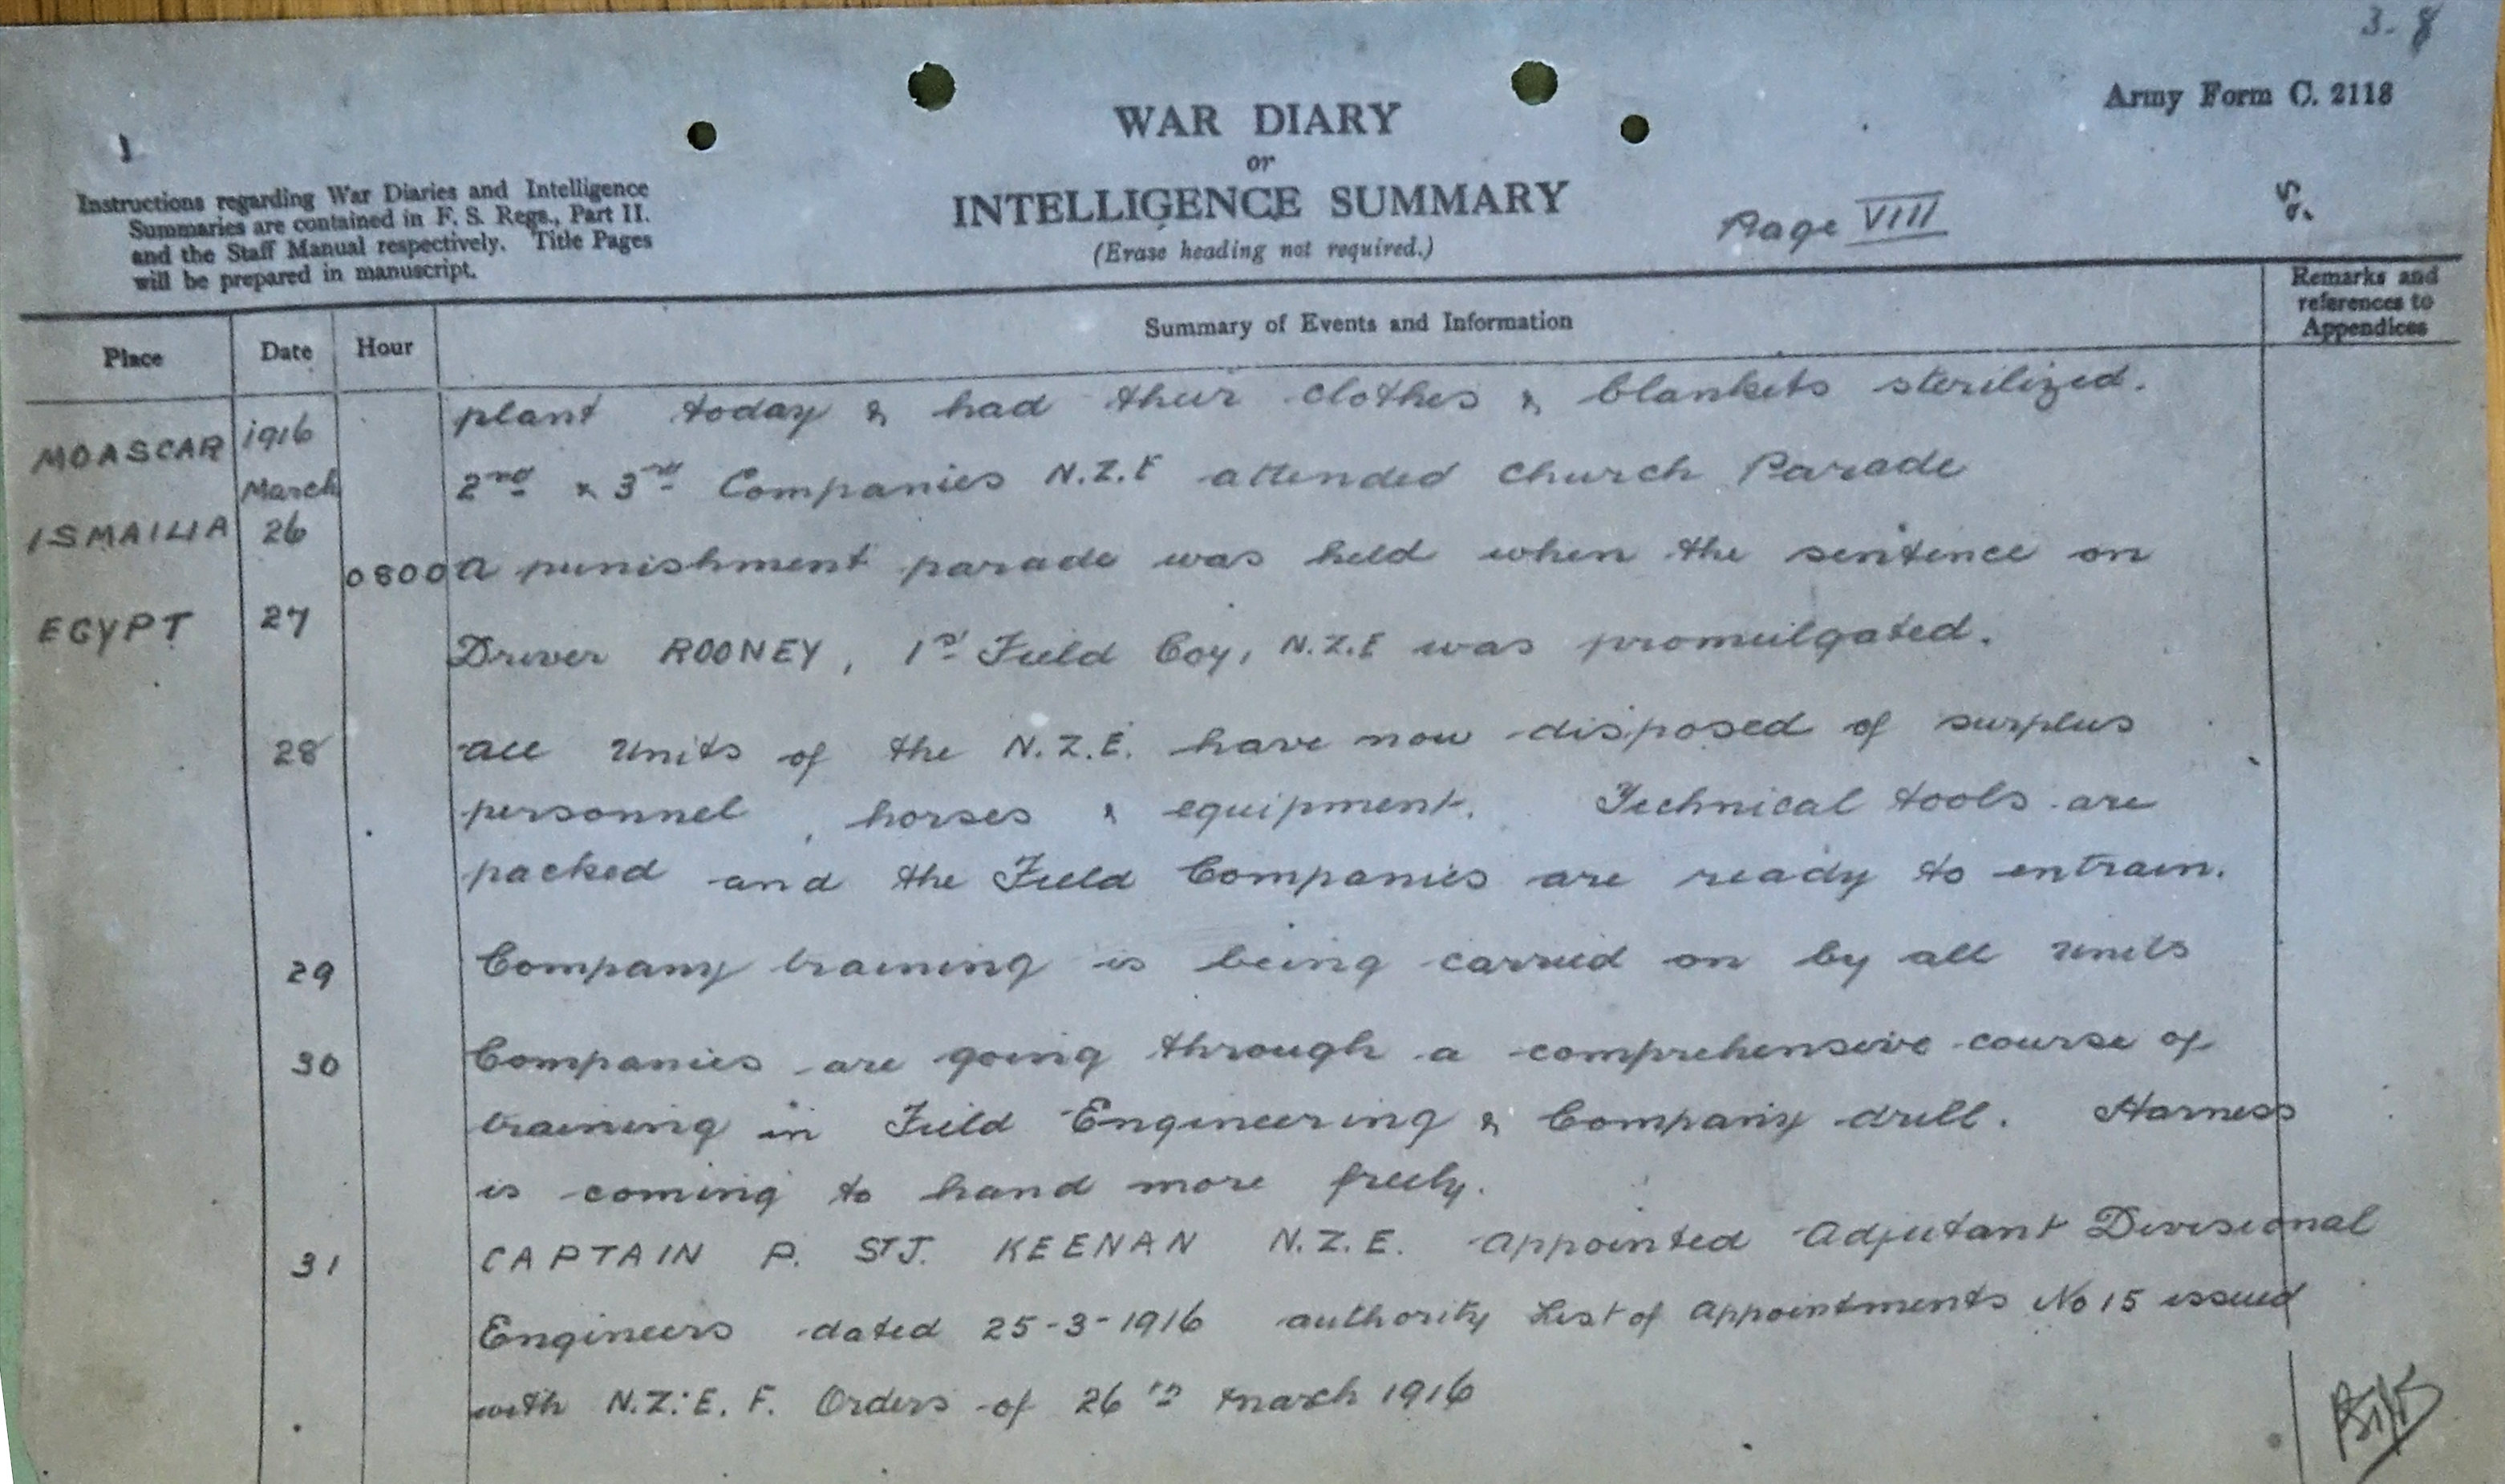 3-8
Army Form C. 2118
WAR DIARY
or
INTELLIGENCE SUMMARY
(Erase heading not required.)
Page VIII
Instructions regarding War Diaries and Intelligence
Summaries are contained in F. S. Regs., Part II.
and the Staff Manual respectively. Title Pages
will be prepared in manuscript.
Place Date Hour Summary of Events and Information Remarks and
references to
Appendices
plant today & had their clothes & blankets sterilized.
MOASCAR 1916
March 2nd & 3rd Companies N.Z.E attended Church Parade
ISMAILIA 26
0800 A punishment parade was held when the sentence on
EGYPT 27
Driver ROONEY, 1st Field Coy, N.Z.E was promulgated.
28 all units of the N.Z.E. have now disposed of surplus
personnel, horses & equipment. Technical tools are
packed and the Field Companies are ready to entrain.
29 Company training is being carried on by all units
30 Companies are going through a comprehensive course of
training in Field Engineering & Company drill. Harness
is coming to hand more freely.
31 CAPTAIN P. ST J. KEENAN N.Z.E. appointed Adjutant Divisional
Engineers dated 25-3-1916 authority List of Appointments No 15 issued
with N.Z.E.F. Orders of 26th March 1916